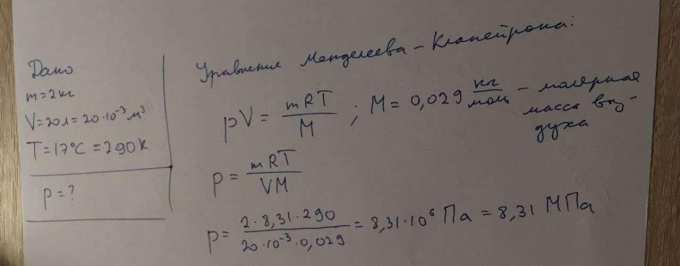 Дано
m=2кг
V=20л=20·10⁻³м³
T=17°C=290K
p=?
Уравнение Менделеева-Клапейрона:
pV = mRT/M ; M = 0,029 кг/моль - молярная
масса воз-
духа
p = mRT/VM
p = 2·8,31·290/20·10⁻³·0,029 = 8,31·10⁶ Па = 8,31 МПа